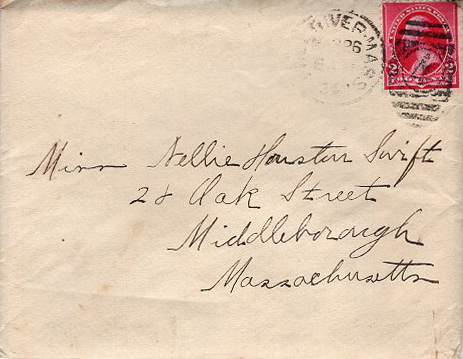 RIVER, MASS
26
2 2
Miss Nellie Houston Swift
28 Oak Street
Middleborough
Massachusetts